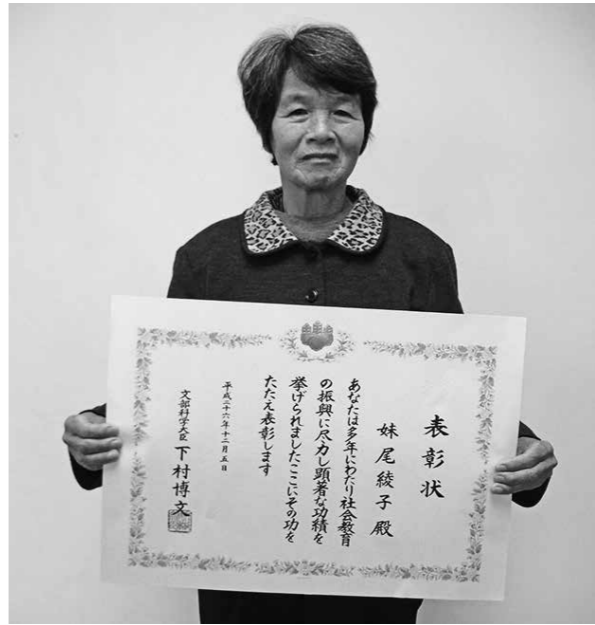 表彰状
妹尾綾子殿
あなたは多年にわたり社会教育
の振興に尽力し顕著な功績を
挙げられましたここにその功を
たたえ表彰します
平成二十六年十二月五日
文部科学大臣 下村博文